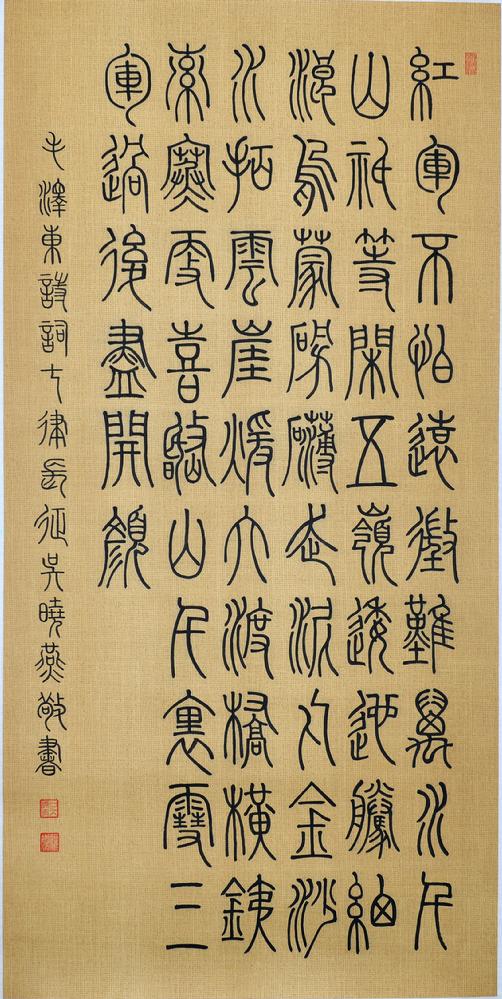 紅軍不怕遠徵難萬水千
山祇等閑五嶺逶迤騰細
浪烏蒙磅礴走泥丸金沙
水拍雲崖煖大渡橋橫銕
索寒更喜岷山千裏雪三
軍過後盡開顏
毛澤東詩詞七律長征吳曉燕敬書